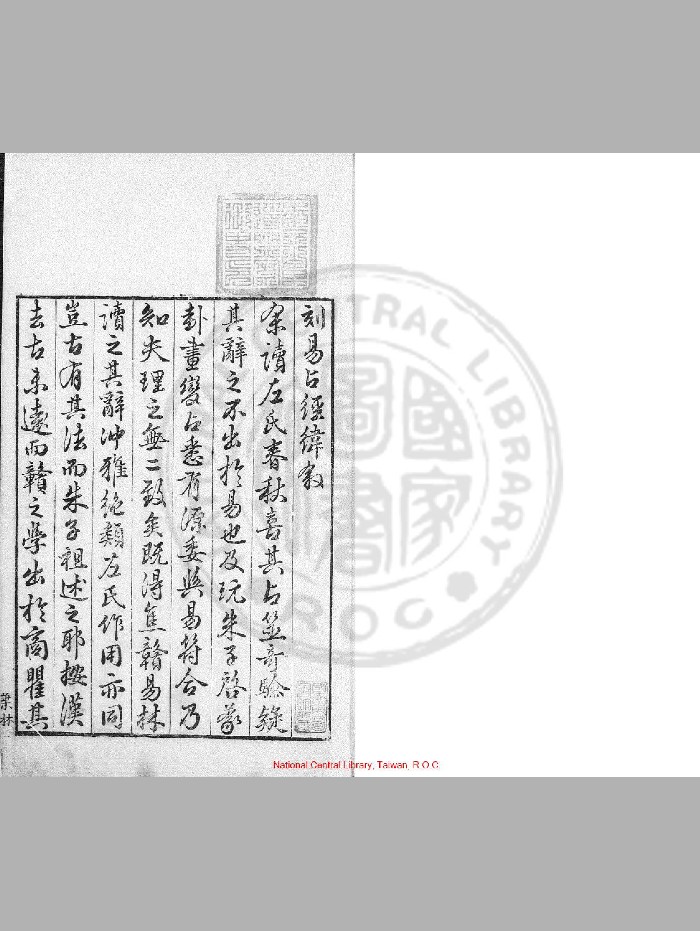 刻易占經緯敘
余讀左氏春秋喜其占筮奇驗疑
其辭之不出於易也及玩朱子啓蒙
卦畫變占悉有源委與易符合乃
知夫理之無二致矣既得焦贛易林
讀之其辭沖雅絶類左氏作用亦同
豈古有其法而朱子祖述之耶按漢
去古未遠而贛之學出於商瞿其
National Central Library, Taiwan, R.O.C
CENTRAL LIBRARY
R O C
國家圖書館